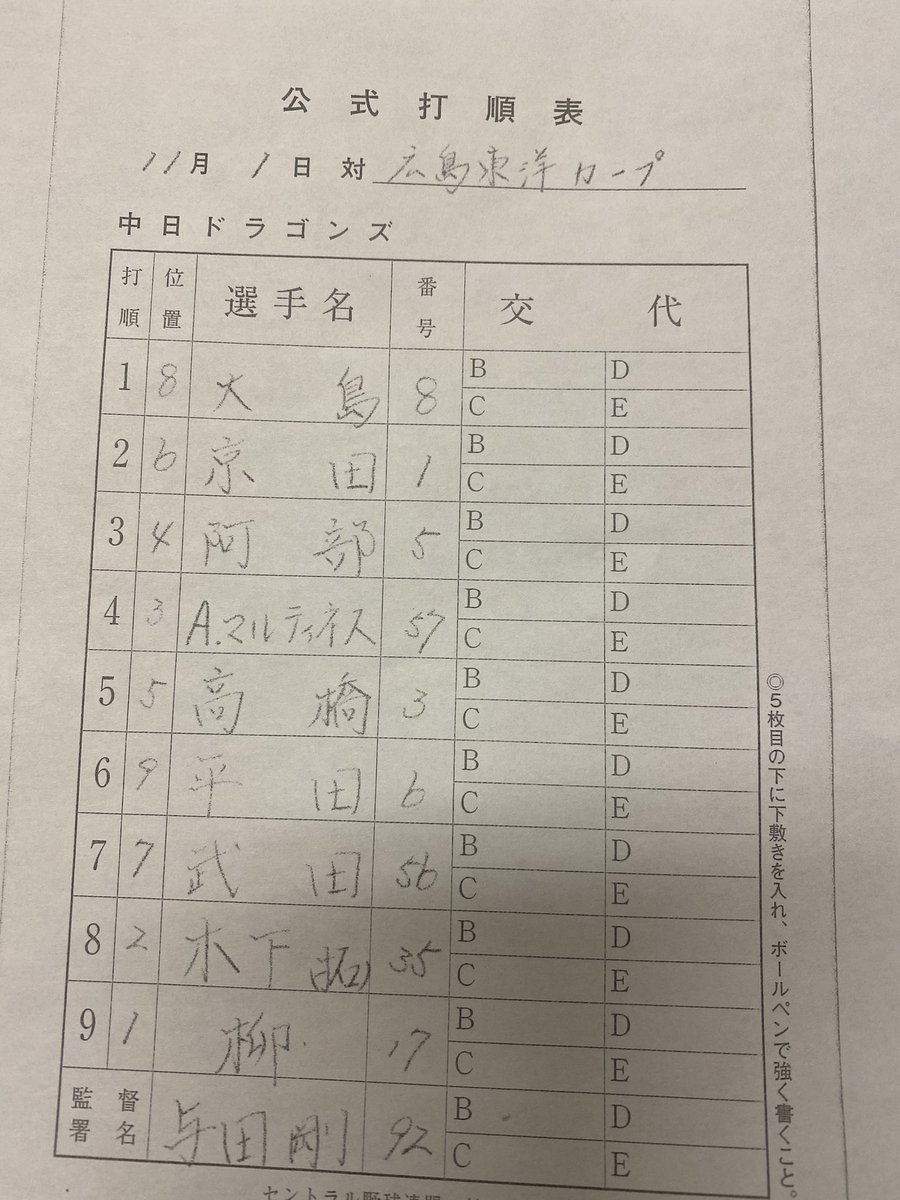 公式打順表
11月 1日 対 広島東洋カープ
中日ドラゴンズ
打順 位置 選手名 番号 交代
1 8 大島 8 B D C E
2 6 京田 1 B D C E
3 4 阿部 5 B D C E
4 3 A.マルティネス 57 B D C E
5 5 高橋 3 B D C E
6 9 平田 6 B D C E
7 7 武田 56 B D C E
8 2 木下(拓) 35 B D C E
9 1 柳 17 B D C E
監督署名 与田剛 92 B D C E
◎5枚目の下に下敷きを入れ、ボールペンで強く書くこと。
セントラル野球連盟